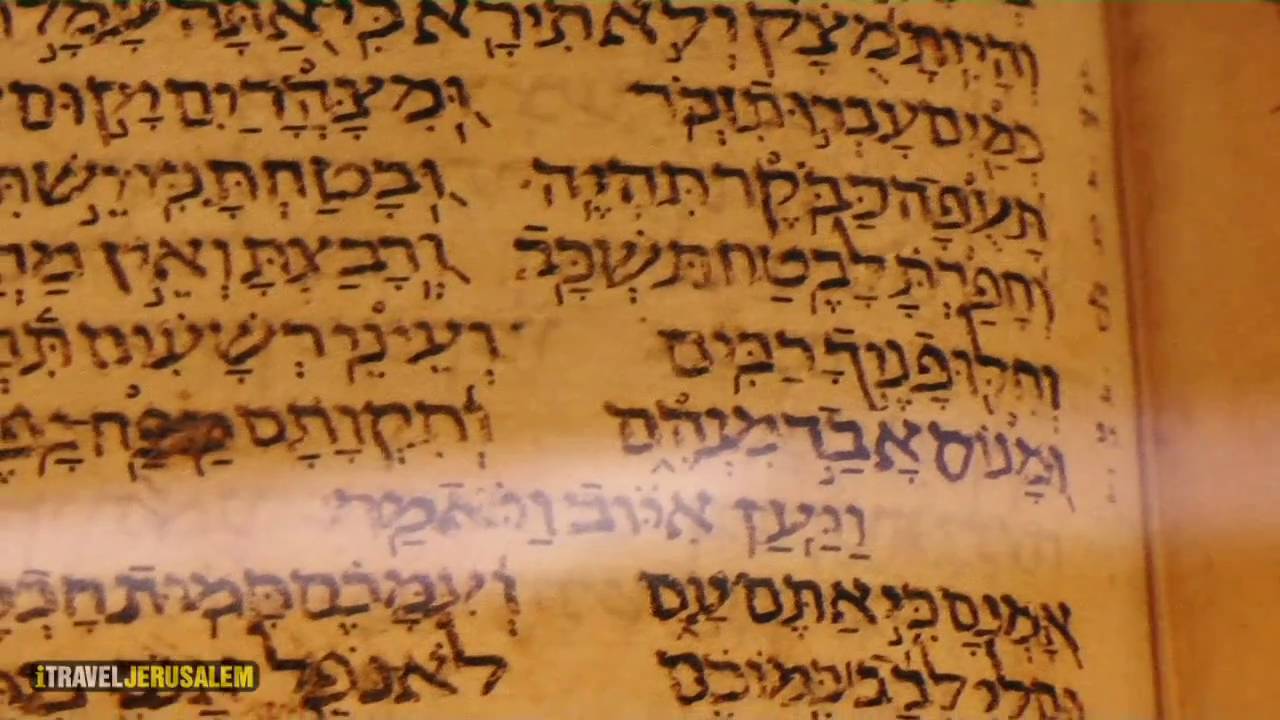 וְהָיִיתָ מֻצָק וְלֹא תִירָא כִּי אַתָּה עָמָל
כְּמַיִם עָבְרוּ תִזְכֹּר וּמִצָּהֳרַיִם יָקוּם
תָּעֻפָה כַּבֹּקֶר תִּהְיֶה וּבָטַחְתָּ כִּי יֵשׁ
וְחָפַרְתָּ לָבֶטַח תִּשְׁכָּב וְרָבַצְתָּ וְאֵין
וְחִלּוּ פָנֶיךָ רַבִּים וְעֵינֵי רְשָׁעִים
וּמָנוֹס אָבַד מִנְהֶם וְתִקְוָתָם
וַיַּעַן אִיּוֹב וַיֹּאמַר
אָמְנָם כִּי אַתֶּם עָם וְעִמָּכֶם תָּמוּת
לִי לֵבָב כְּמוֹכֶם לֹא נֹפֵל
iTRAVELJERUSALEM